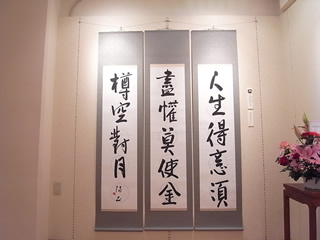 人生得意須
盡懽莫使金
樽空對月